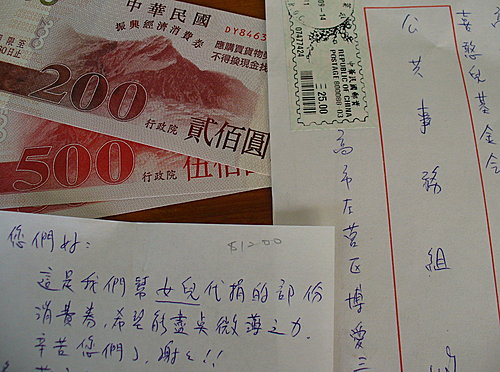 中華民國
DY8463
振興經濟消費券
應購買貨物
不得換現金找
200
行政院
貳佰圓
500
行政院
伍佰
14
D707422
中華民國郵票
REPUBLIC OF CHINA
POSTAGE
25.00
喜憨兒基金會
公共事務組
高市左營區博愛三
您們好：
$1200
這是我們幫女兒代捐的部份
消費券，希望能盡與微薄之力．
辛苦您們了，謝謝！！